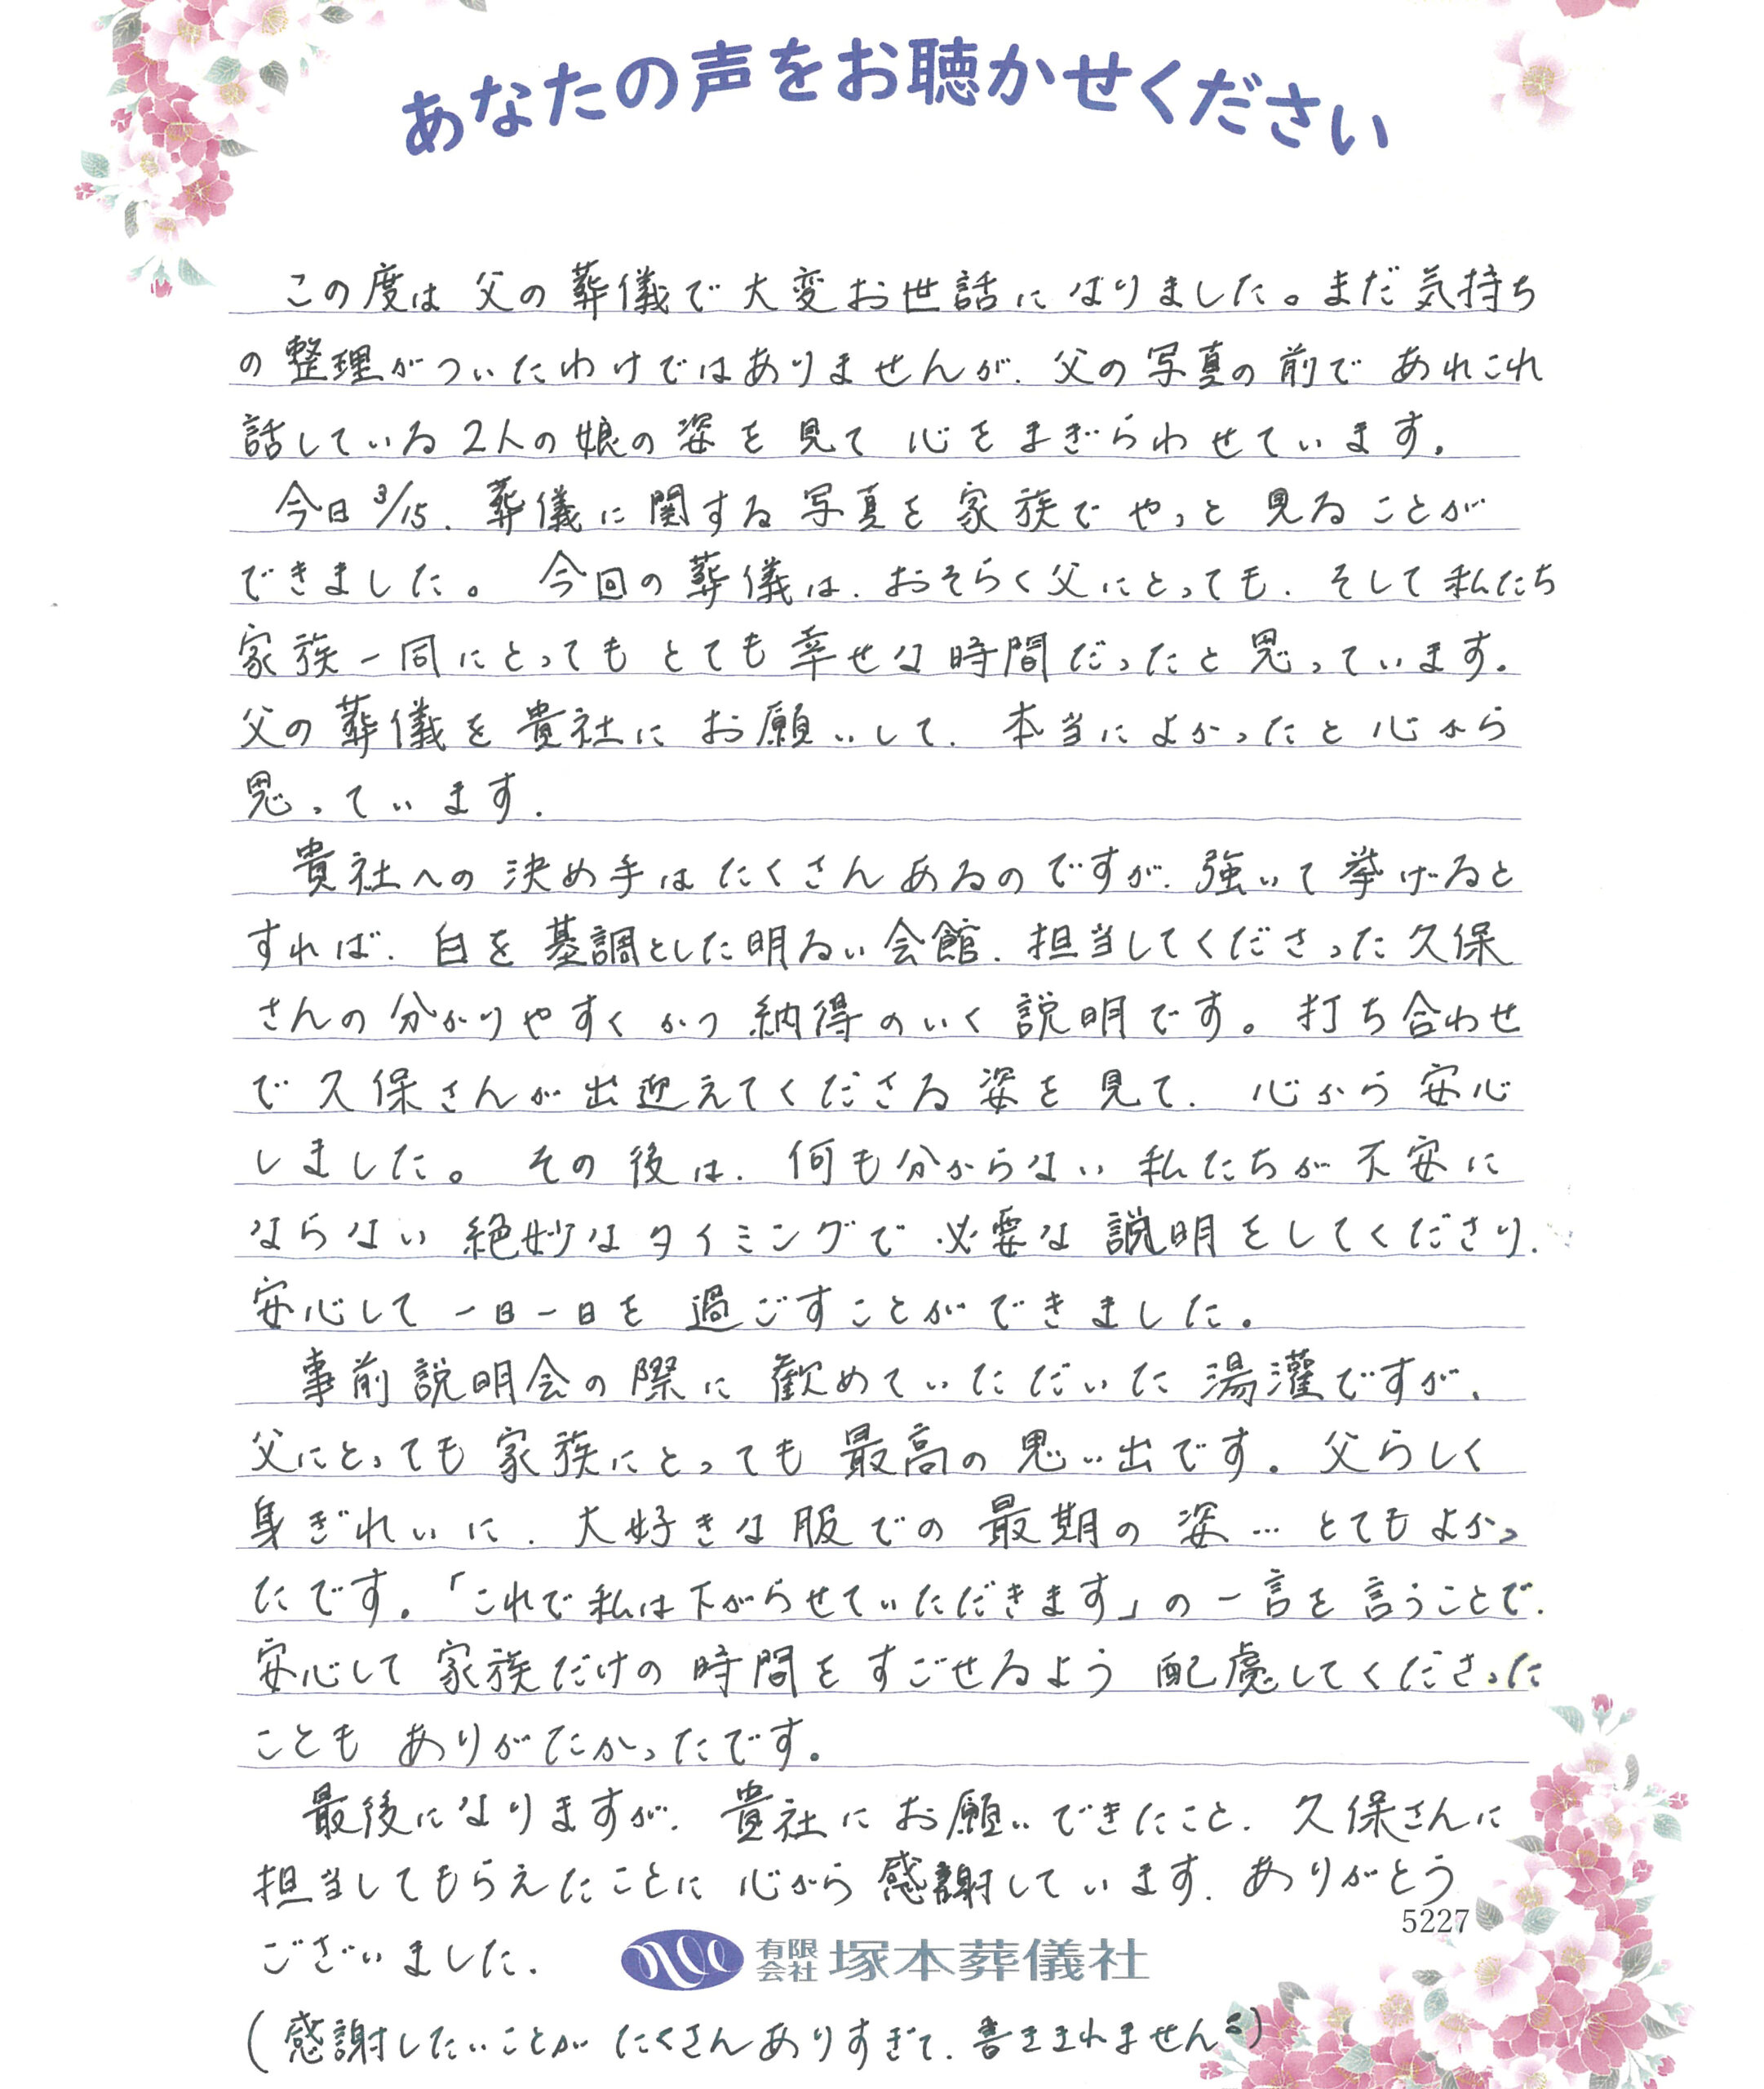 あなたの声をお聴かせください
この度は 父の葬儀で大変お世話になりました。まだ気持ち
の整理がついたわけではありませんが、父の写真の前で あれこれ
話している 2人の娘の姿を見て 心をまぎらわせています。
今日3/15、葬儀に関する写真を家族でやっと見ることが
できました。 今回の葬儀は、おそらく父にとっても、そして私たち
家族一同にとっても とても幸せな時間だったと思っています。
父の葬儀を貴社にお願いして、本当によかったと心から
思っています。
貴社への決め手はたくさんあるのですが、強いて挙げると
すれば、白を基調とした明るい会館、担当してくださった久保
さんの分かりやすくかつ納得のいく説明です。打ち合わせ
で久保さんが出迎えてくださる姿を見て、心から安心
しました。 その後は、何も分からない私たちが不安に
ならない絶妙なタイミングで必要な説明をしてくださり、
安心して一日一日を過ごすことができました。
事前説明会の際に歓めていただいた湯灌ですが、
父にとっても家族にとっても最高の思い出です。父らしく
身ぎれいに、大好きな服での最期の姿…とてもよかっ
たです。「これで私は下がらせていただきます」の一言を言うことで、
安心して家族だけの時間をすごせるよう配慮してくださった
ことも ありがたかったです。
最後になりますが、貴社にお願いできたこと、久保さんに
担当してもらえたことに心から感謝しています。ありがとう
5227
ございました。
有限会社 塚本葬儀社
(感謝したいことがたくさんありすぎて、書ききれません)